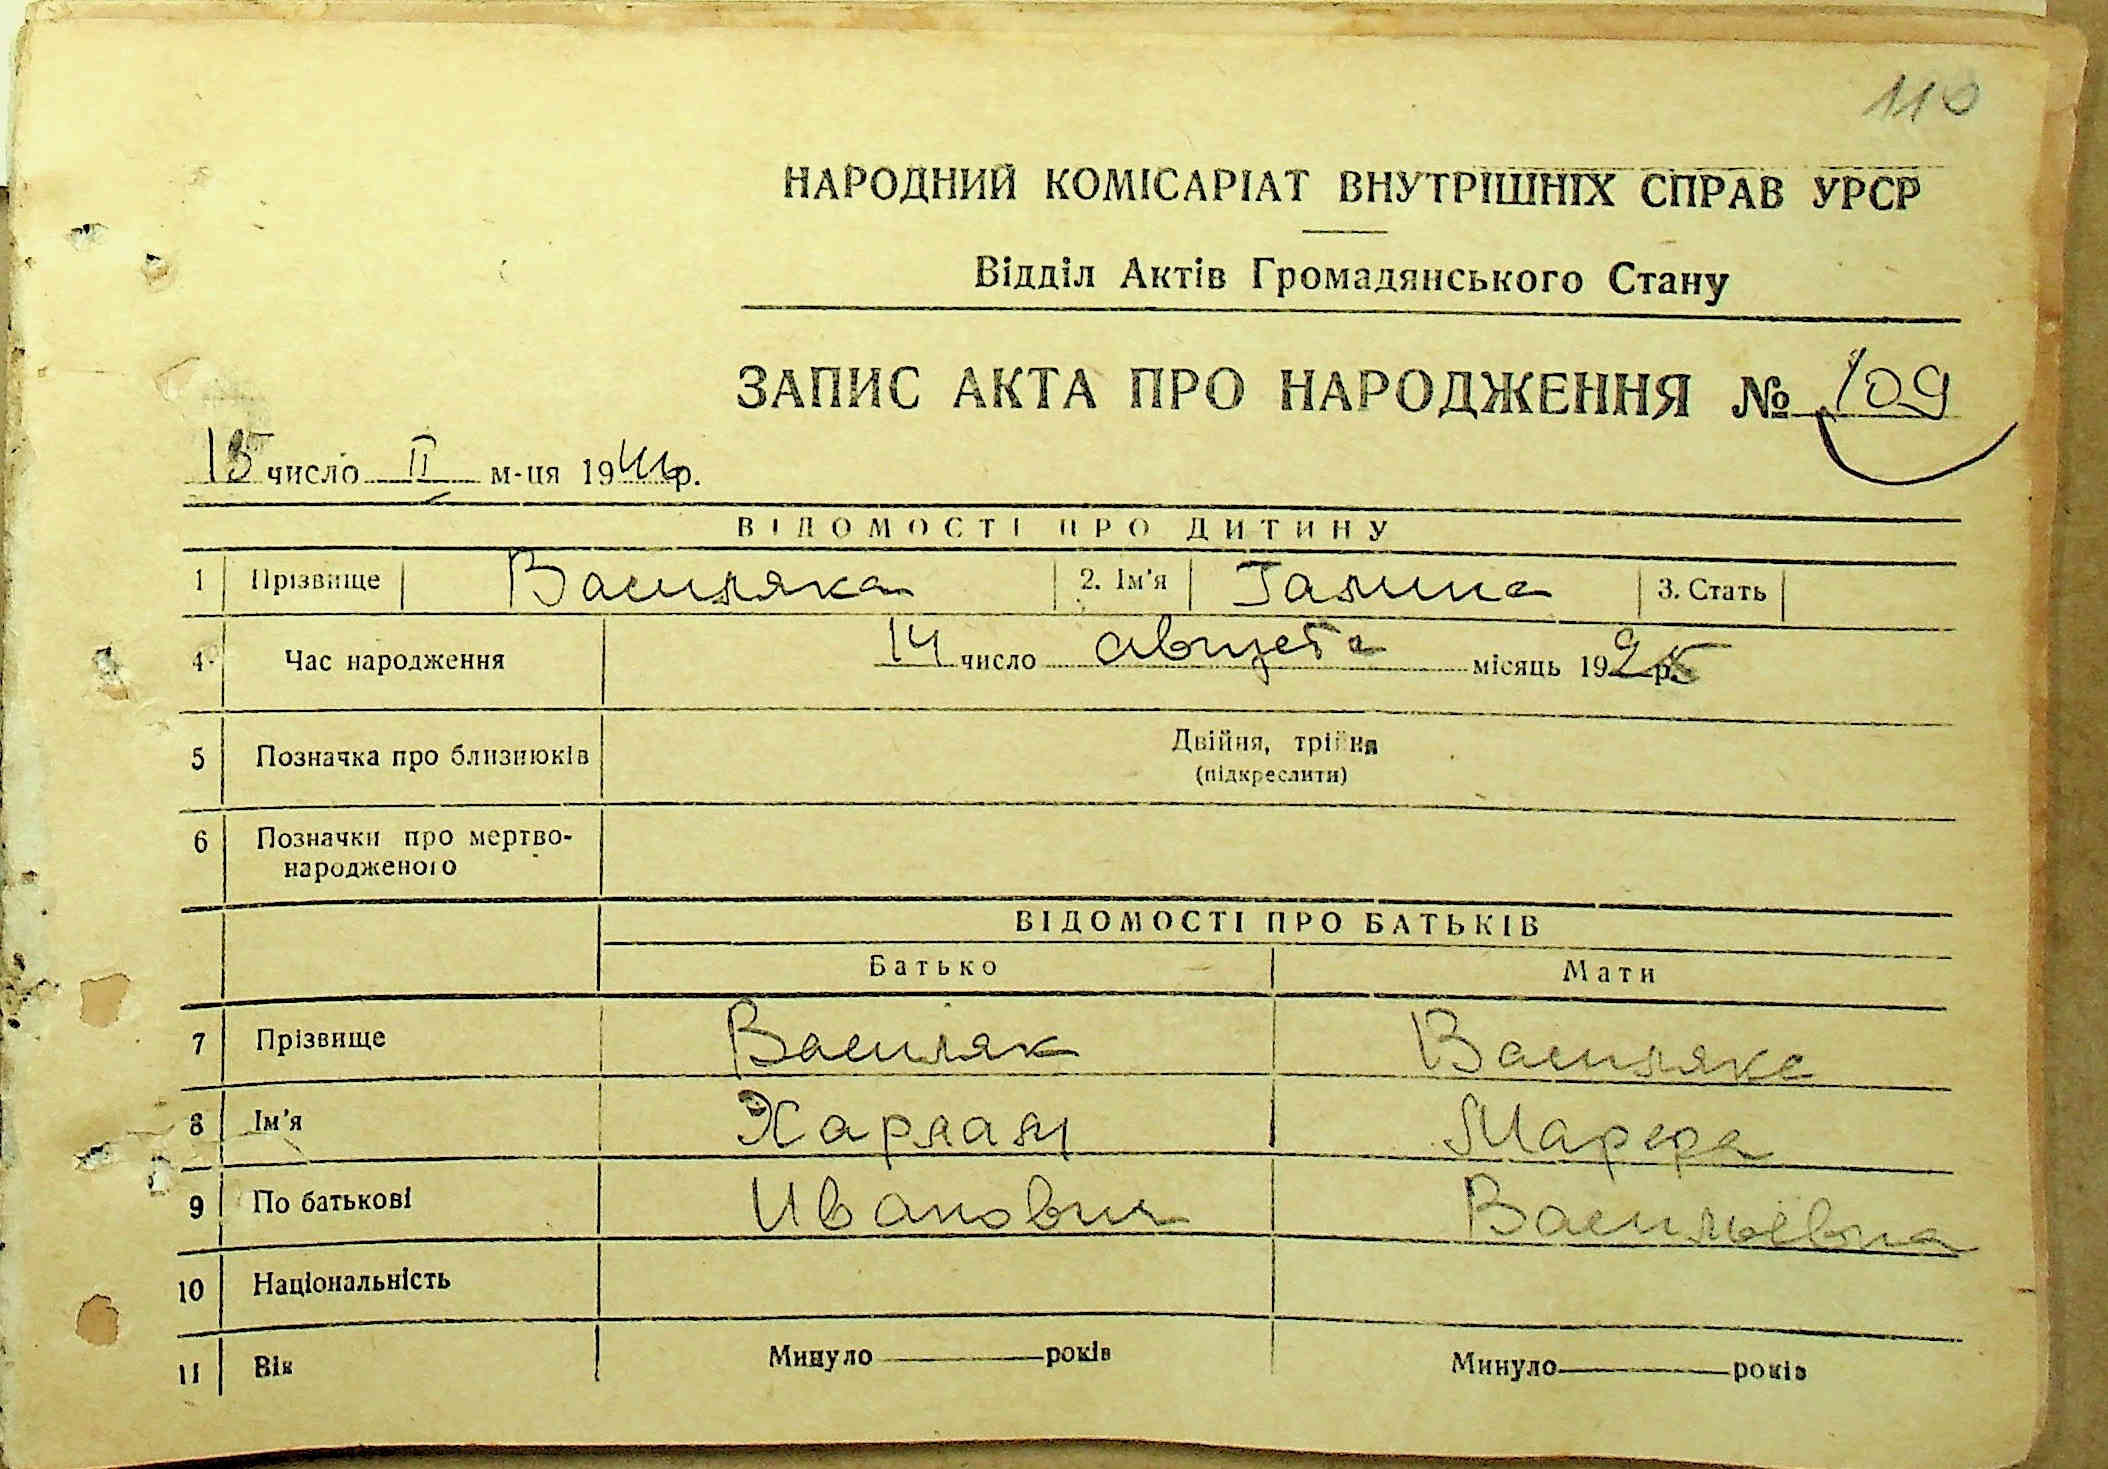 110
НАРОДНИЙ КОМІСАРІАТ ВНУТРІШНІХ СПРАВ УРСР
Відділ Актів Громадянського Стану
ЗАПИС АКТА ПРО НАРОДЖЕННЯ № 109
15 число II м-ця 1944 р.
ВІДОМОСТІ ПРО ДИТИНУ
1 Прізвище Василяка 2. Ім'я Галина 3. Стать
4 Час народження 14 число августа місяць 1925 р.
5 Позначка про близнюків Двійня, трійня
(підкреслити)
6 Позначки про мертво-
народженого
ВІДОМОСТІ ПРО БАТЬКІВ
Батько Мати
7 Прізвище Василяк Василяка
8 Ім'я Харлам Марфа
9 По батькові Иванович Васильевна
10 Національність
11 Вік Минуло років Минуло років